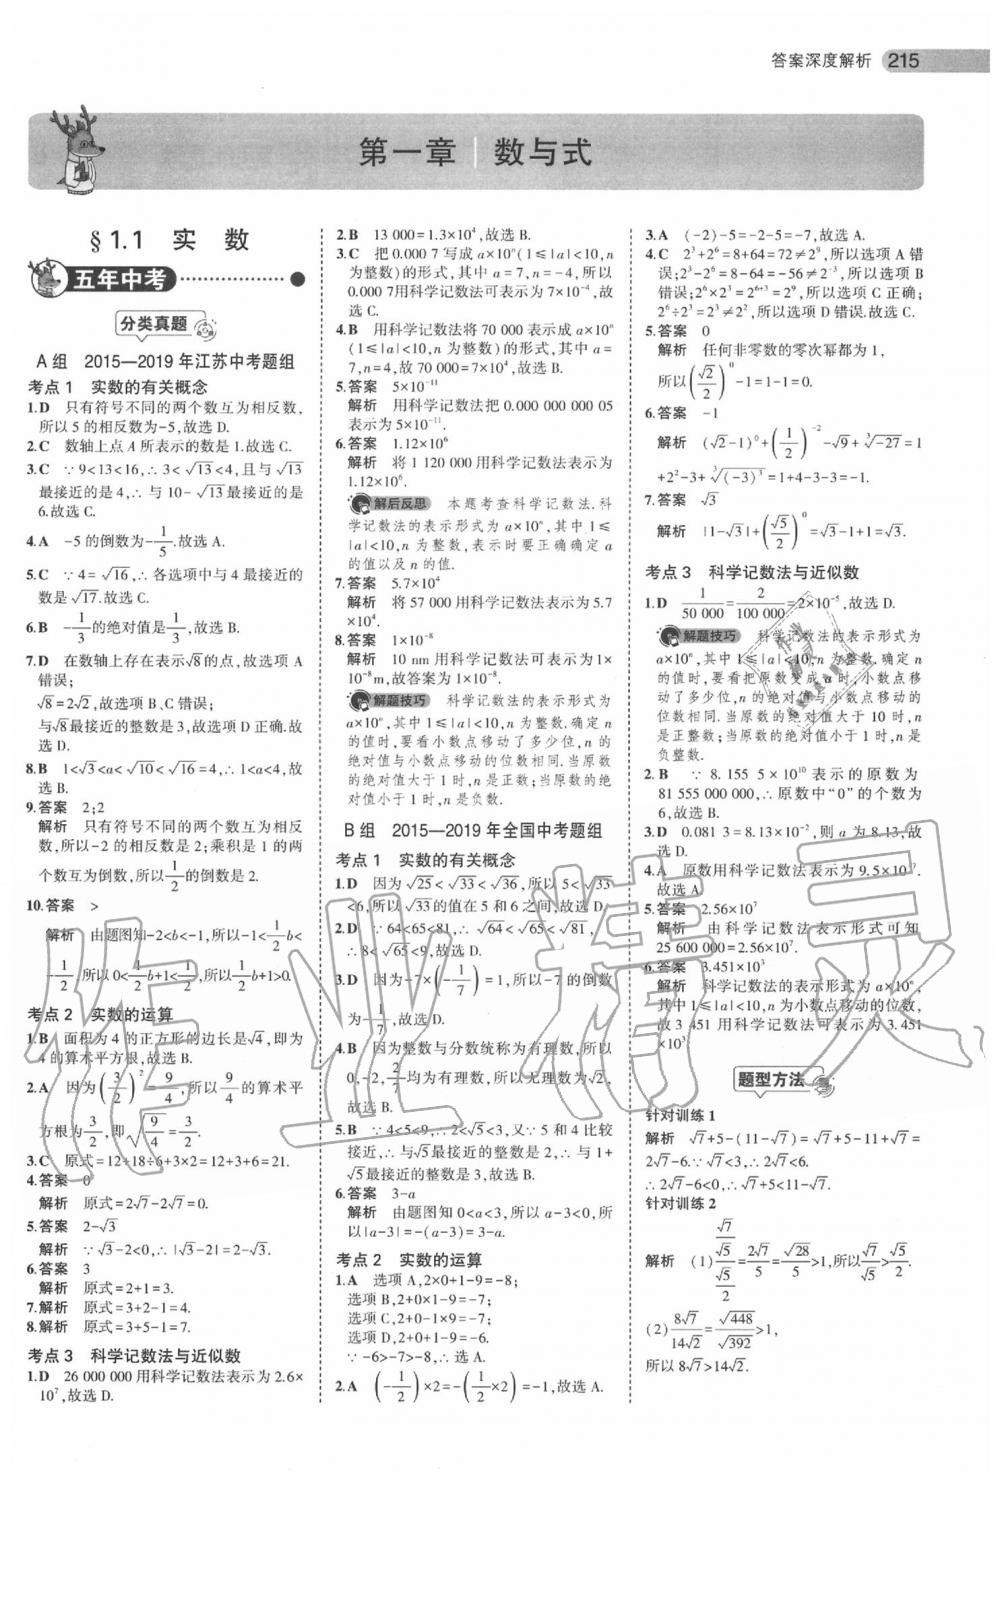 答案深度解析 215
第一章 数与式
§1.1 实 数
五年中考
分类真题
A组 2015—2019年江苏中考题组
考点1 实数的有关概念
1.D 只有符号不同的两个数互为相反数,
所以5的相反数为-5,故选D.
2.C 数轴上点A所表示的数是1.故选C.
3.C ∵9<13<16,∴3<√13<4,且与√13
最接近的是4,∴与10-√13最接近的是
6.故选C.
4.A -5的倒数为-1/5.故选A.
5.C ∵4=√16,∴各选项中与4最接近的
数是√17.故选C.
6.B -1/3的绝对值是1/3,故选B.
7.D 在数轴上存在表示√8的点,故选项A
错误;
√8=2√2,故选项B、C错误;
与√8最接近的整数是3,故选项D正确.故
选D.
8.B 1<√3<a<√10<√16=4,∴1<a<4,故选
B.
9.答案 2;2
解析 只有符号不同的两个数互为相反
数,所以-2的相反数是2;乘积是1的两
个数互为倒数,所以1/2的倒数是2.
10.答案 >
解析 由题图知-2<b<-1,所以-1<1/2b<
-1/2,所以0<1/2b+1<1/2,所以1/2b+1>0.
考点2 实数的运算
1.B 面积为4的正方形的边长是√4,即为
4的算术平方根,故选B.
2.A 因为(3/2)²=9/4,所以9/4的算术平
方根为3/2,即√(9/4)=3/2.
3.C 原式=12+18÷6+3×2=12+3+6=21.
4.答案 0
解析 原式=2√7-2√7=0.
5.答案 2-√3
解析 ∵√3-2<0,∴|√3-2|=2-√3.
6.答案 3
解析 原式=2+1=3.
7.解析 原式=3+2-1=4.
8.解析 原式=3+5-1=7.
考点3 科学记数法与近似数
1.D 26 000 000用科学记数法表示为2.6×
10⁷,故选D.
2.B 13 000=1.3×10⁴,故选B.
3.C 把0.000 7写成a×10ⁿ(1≤|a|<10,n
为整数)的形式,其中a=7,n=-4,所以
0.000 7用科学记数法可表示为7×10⁻⁴,故
选C.
4.B 用科学记数法将70 000表示成a×10ⁿ
(1≤|a|<10,n为整数)的形式,其中a=
7,n=4,故70 000=7×10⁴,故选B.
5.答案 5×10⁻¹¹
解析 用科学记数法把0.000 000 000 05
表示为5×10⁻¹¹.
6.答案 1.12×10⁶
解析 将1 120 000用科学记数法表示为
1.12×10⁶.
解后反思 本题考查科学记数法.科
学记数法的表示形式为a×10ⁿ,其中1≤
|a|<10,n为整数,表示时要正确确定a
的值以及n的值.
7.答案 5.7×10⁴
解析 将57 000用科学记数法表示为5.7
×10⁴.
8.答案 1×10⁻⁸
解析 10 nm用科学记数法可表示为1×
10⁻⁸m,故答案为1×10⁻⁸.
解题技巧 科学记数法的表示形式为
a×10ⁿ,其中1≤|a|<10,n为整数.确定n
的值时,要看小数点移动了多少位,n的
绝对值与小数点移动的位数相同.当原数
的绝对值大于1时,n是正数;当原数的绝
对值小于1时,n是负数.
B组 2015—2019年全国中考题组
考点1 实数的有关概念
1.D 因为√25<√33<√36,所以5<√33
<6,所以√33的值在5和6之间,故选D.
2.D ∵64<65<81,∴√64<√65<√81,
∴8<√65<9,故选D.
3.D 因为-7×(-1/7)=1,所以-7的倒数
为-1/7,故选D.
4.B 因为整数与分数统称为有理数,所以
0,-2,2/7均为有理数,所以无理数为√2,
故选B.
5.B ∵4<5<9,∴2<√5<3,又∵5和4比较
接近,∴与√5最接近的整数是2,∴与1+
√5最接近的整数是3,故选B.
6.答案 3-a
解析 由题图知0<a<3,所以a-3<0,所
以|a-3|=-(a-3)=3-a.
考点2 实数的运算
1.A 选项A,2×0+1-9=-8;
选项B,2+0×1-9=-7;
选项C,2+0-1×9=-7;
选项D,2+0+1-9=-6.
∵-6>-7>-8,∴选A.
2.A (-1/2)×2=-(1/2×2)=-1,故选A.
3.A (-2)-5=-2-5=-7,故选A.
4.C 2³+2⁶=8+64=72≠2⁹,所以选项A错
误;2³-2⁶=8-64=-56≠2⁻³,所以选项B
错误;2⁶×2³=2⁶⁺³=2⁹,所以选项C正确;
2⁶÷2³=2³≠2²,所以选项D错误.故选C.
5.答案 0
解析 任何非零数的零次幂都为1,
所以(√2/2)⁰-1=1-1=0.
6.答案 -1
解析 (√2-1)⁰+(1/2)⁻²-√9+∛-27=1
+2²-3+∛(-3)³=1+4-3-3=-1.
7.答案 √3
解析 |1-√3|+(√5/2)⁰=√3-1+1=√3.
考点3 科学记数法与近似数
1.D 1/50 000=2/100 000=2×10⁻⁵,故选D.
解题技巧 科学记数法的表示形式为
a×10ⁿ,其中1≤|a|<10,n为整数.确定n
的值时,要看把原数变成a时,小数点移
动了多少位,n的绝对值与小数点移动的
位数相同.当原数的绝对值大于10时,n
是正整数;当原数的绝对值小于1时,n是
负整数.
2.B ∵8.155 5×10¹⁰表示的原数为
81 555 000 000,∴原数中“0”的个数为
6,故选B.
3.D 0.081 3=8.13×10⁻²,则a为8.13,故
选D.
4.A 原数用科学记数法表示为9.5×10⁷.
故选A.
5.答案 2.56×10⁷
解析 由科学记数法表示形式可知
25 600 000=2.56×10⁷.
6.答案 3.451×10³
解析 科学记数法的表示形式为a×10ⁿ,
其中1≤|a|<10,n为小数点移动的位数,
故3 451用科学记数法可表示为3.451
×10³.
题型方法
针对训练1
解析 √7+5-(11-√7)=√7+5-11+√7=
2√7-6.∵√7<3,∴2√7<6.
∴2√7-6<0,∴√7+5<11-√7.
针对训练2
解析 (1)(√7/√5)/(√5/2)=2√7/5=√28/5>1,所以√7/√5>√5/2.
(2)8√7/14√2=√448/√392>1,
所以8√7>14√2.
作业精灵